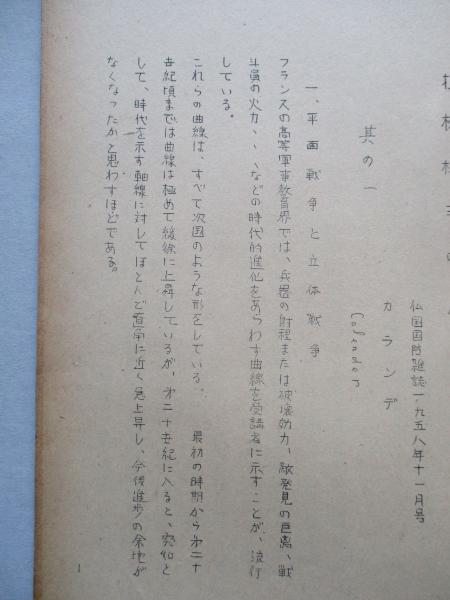 其の一
仏国国防雑誌一九五八年十一月号
カランデ
Calendes
一、平画戦争と立体戦争
フランスの高等軍事教育界では、兵器の射程または破壊効力、敵発見の距離、戦
斗員の火力、、、などの時代的進化をあらわす曲線を受講者に示すことが、流行
している。
これらの曲線は、すべて次図のような形をしている。 最初の時期から第二十
世紀頃までは曲線は極めて緩徐に上昇しているが、第二十世紀に入ると、突如と
して、時代を示す軸線に対してほとんど直角に近く急上昇し、今後進歩の余地が
なくなったかと思わすほどである。
1